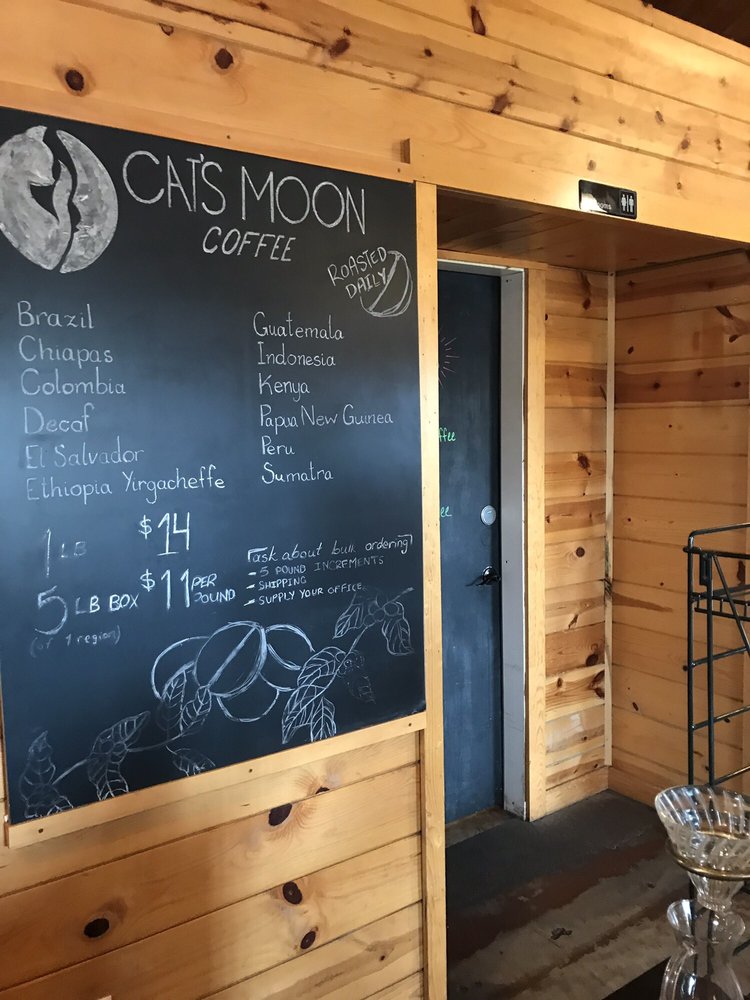 CAT'S MOON
COFFEE
ROASTED
DAILY
Brazil
Chiapas
Colombia
Decaf
El Salvador
Ethiopia Yirgacheffe
Guatemala
Indonesia
Kenya
Papua New Guinea
Peru
Sumatra
1 LB $14
5 LB BOX $11 PER POUND
(of 1 region)
ask about bulk ordering
- 5 POUND INCREMENTS
- SHIPPING
- SUPPLY YOUR OFFICE